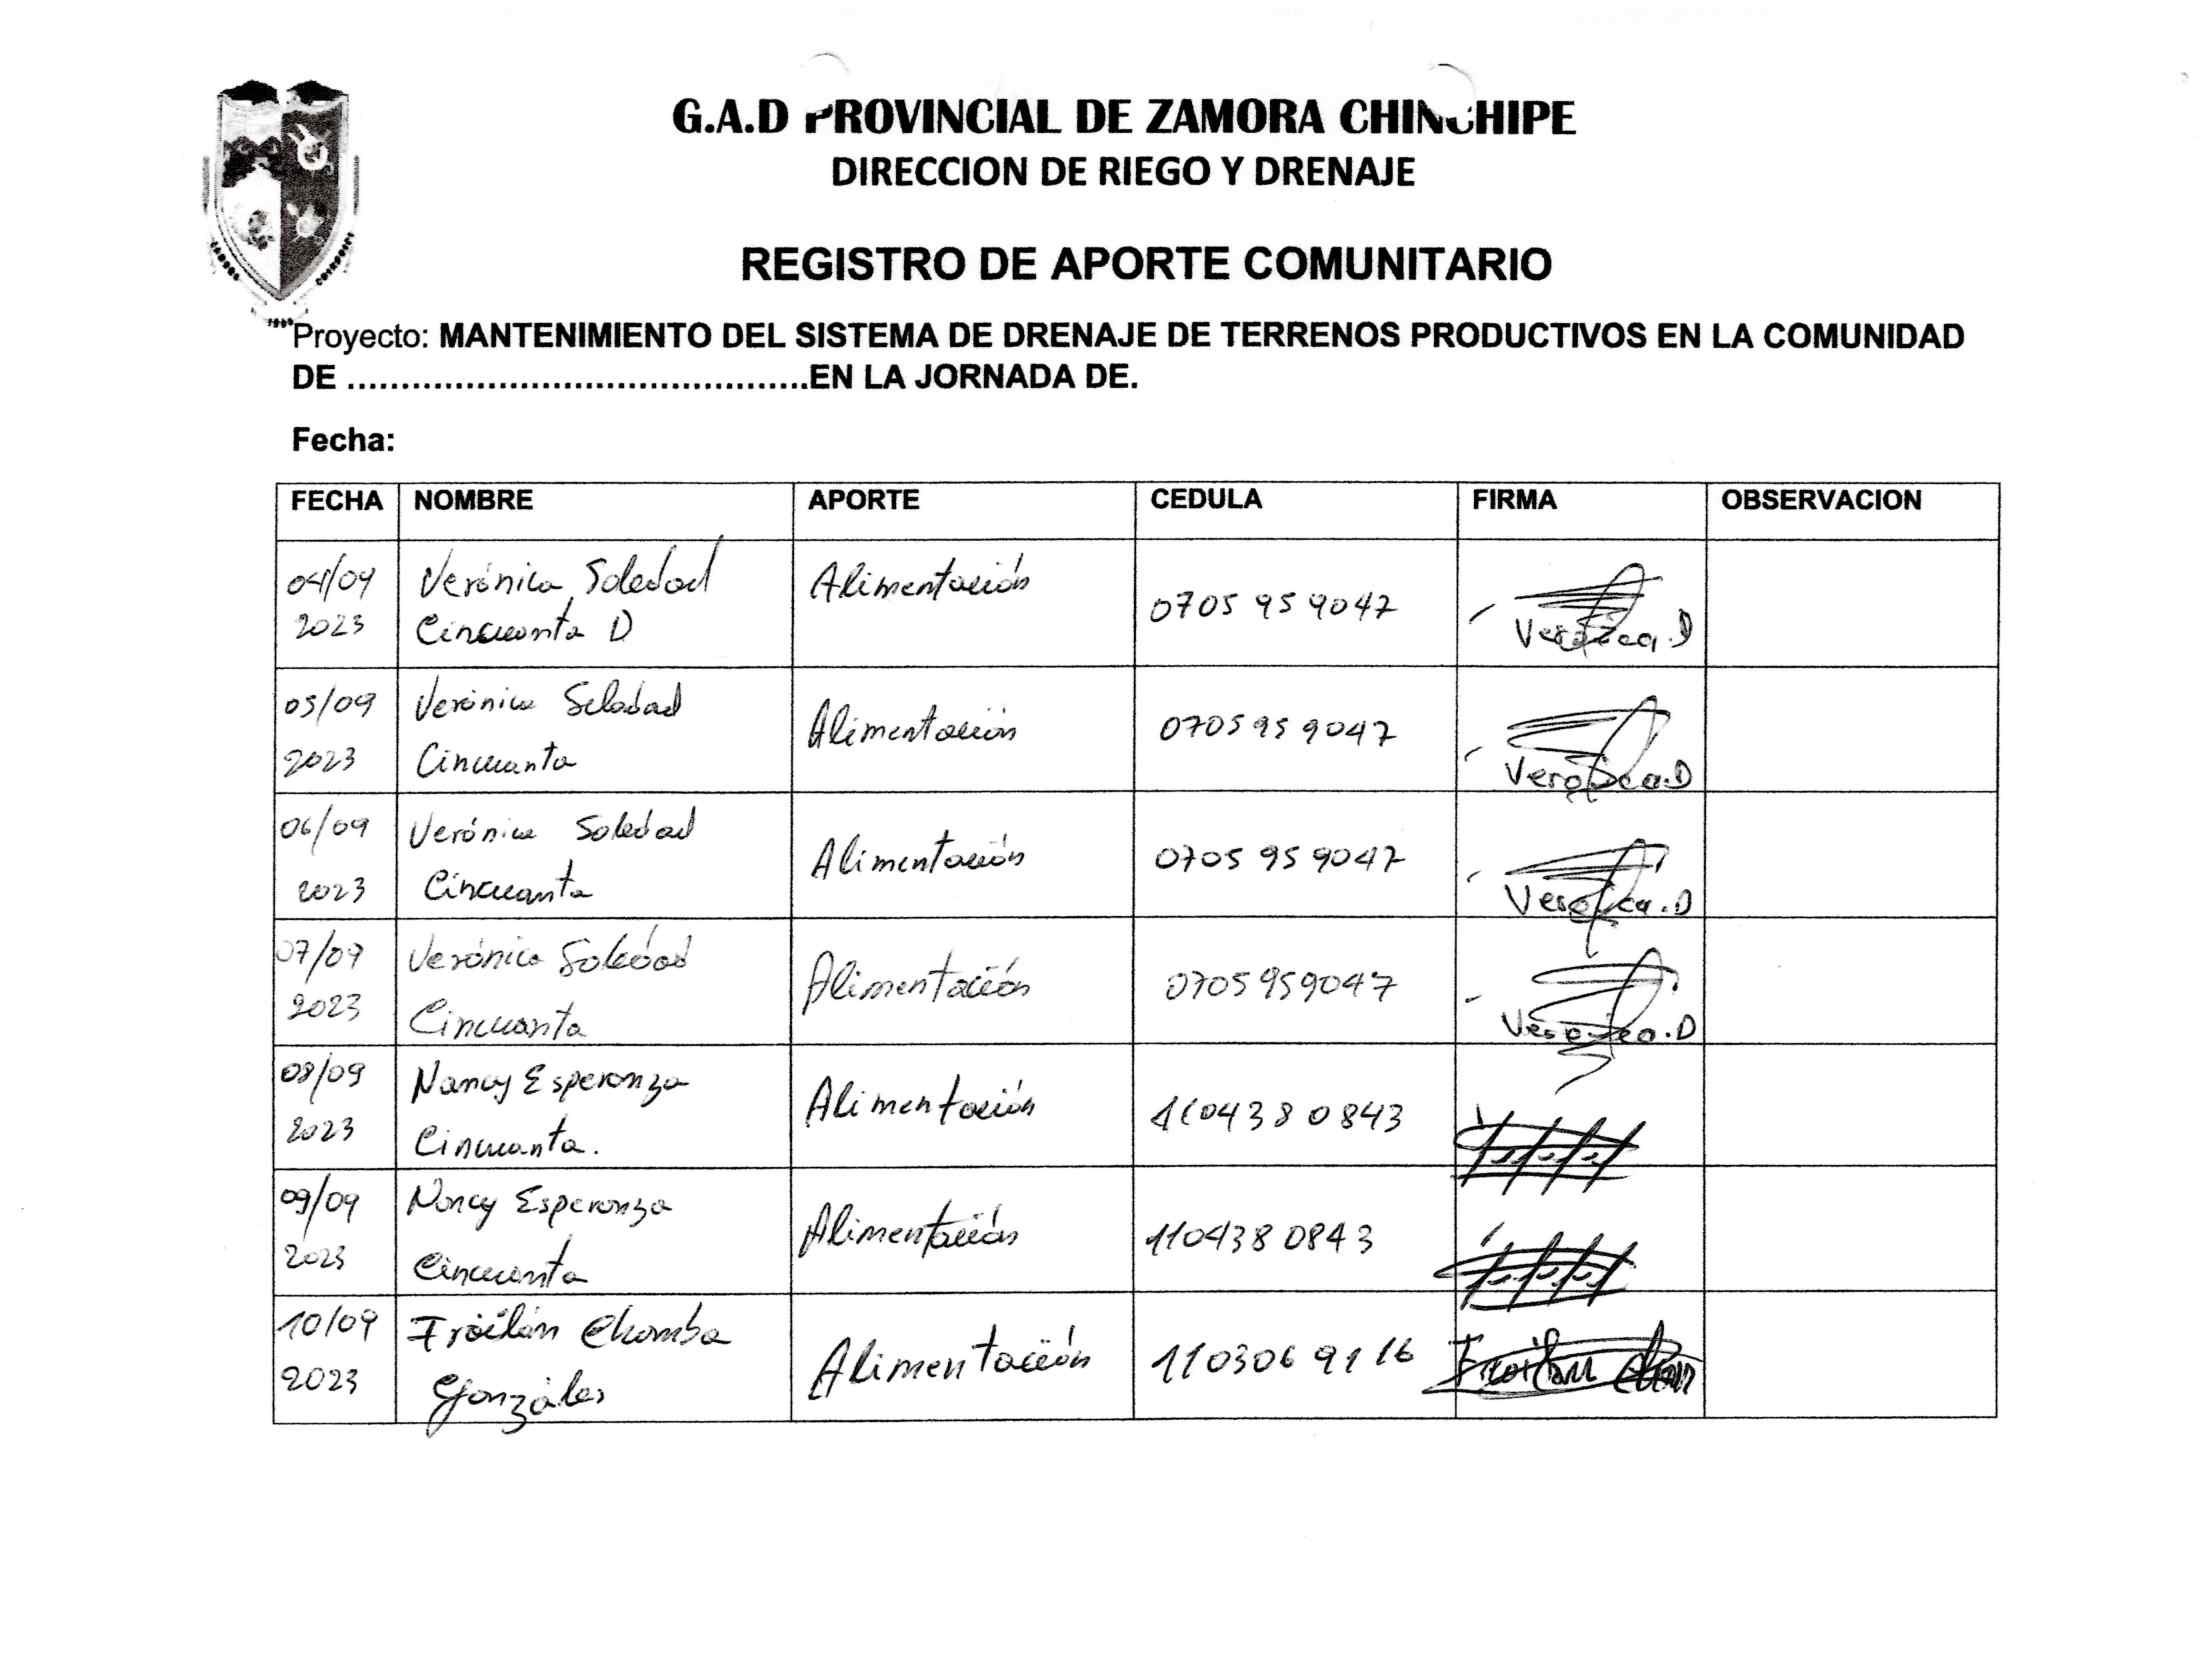 G.A.D PROVINCIAL DE ZAMORA CHINCHIPE
DIRECCION DE RIEGO Y DRENAJE
REGISTRO DE APORTE COMUNITARIO
Proyecto: MANTENIMIENTO DEL SISTEMA DE DRENAJE DE TERRENOS PRODUCTIVOS EN LA COMUNIDAD
DE ..........................................EN LA JORNADA DE.
Fecha:
FECHA NOMBRE APORTE CEDULA FIRMA OBSERVACION
04/09 Verónica Soledad Alimentación
2023 Cincuanta D 0705959047 Veronica.D
05/09 Verónica Soledad Alimentación 0705959047
2023 Cincuanta Veronica.D
06/09 Verónica Soledad Alimentación 0705959047
2023 Cincuanta Veronica.D
07/09 Verónica Soledad Alimentación 0705959047
2023 Cincuanta Veronica.D
08/09 Nancy Esperanza Alimentación 1104380843
2023 Cincuanta.
09/09 Nancy Esperanza Alimentación 1104380843
2023 Cincuanta
10/09 Froilán Chamba Alimentación 1103069116 Froilan
2023 Gonzáles